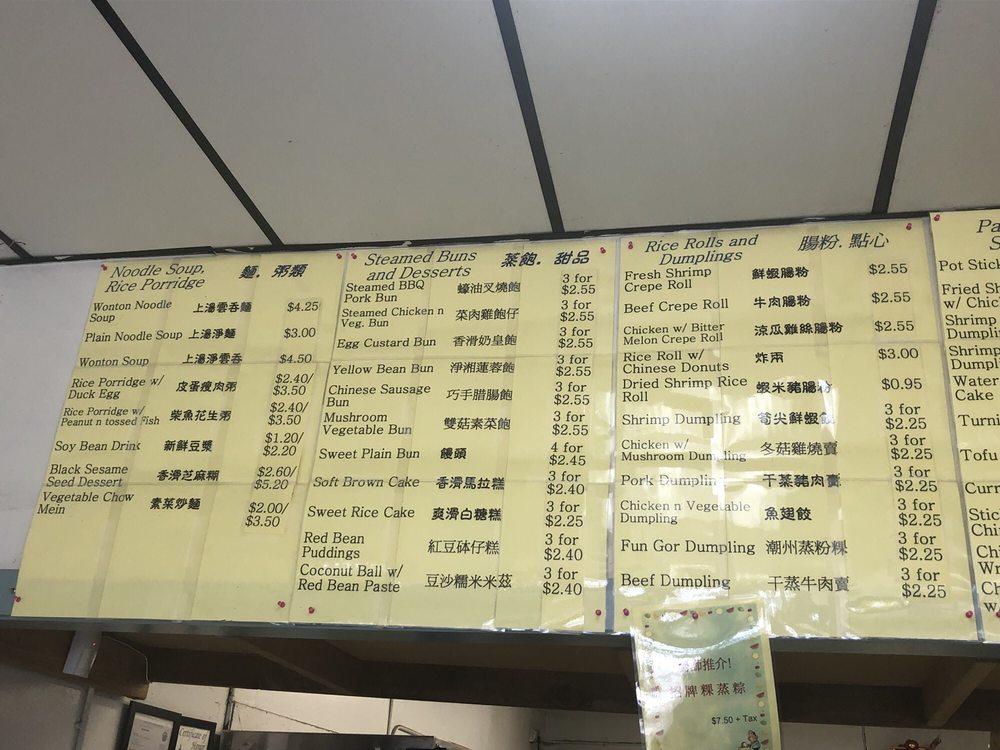 Noodle Soup, Rice Porridge 麵. 粥類
Wonton Noodle Soup 上湯雲吞麵 $4.25
Plain Noodle Soup 上湯淨麵 $3.00
Wonton Soup 上湯淨雲吞 $4.50
Rice Porridge w/ Duck Egg 皮蛋瘦肉粥 $2.40/ $3.50
Rice Porridge w/ Peanut n tossed Fish 柴魚花生粥 $2.40/ $3.50
Soy Bean Drink 新鮮豆漿 $1.20/ $2.20
Black Sesame Seed Dessert 香滑芝麻糊 $2.60/ $5.20
Vegetable Chow Mein 素菜炒麵 $2.00/ $3.50
Steamed Buns and Desserts 蒸飽. 甜品
Steamed BBQ Pork Bun 蠔油叉燒飽 3 for $2.55
Steamed Chicken n Veg. Bun 菜肉雞飽仔 3 for $2.55
Egg Custard Bun 香滑奶皇飽 3 for $2.55
Yellow Bean Bun 淨湘蓮蓉飽 3 for $2.55
Chinese Sausage Bun 巧手腊腸飽 3 for $2.55
Mushroom Vegetable Bun 雙菇素菜飽 3 for $2.55
Sweet Plain Bun 饅頭 4 for $2.45
Soft Brown Cake 香滑馬拉糕 3 for $2.40
Sweet Rice Cake 爽滑白糖糕 3 for $2.25
Red Bean Puddings 紅豆砵仔糕 3 for $2.40
Coconut Ball w/ Red Bean Paste 豆沙糯米米茲 3 for $2.40
Rice Rolls and Dumplings 腸粉. 點心
Fresh Shrimp Crepe Roll 鮮蝦腸粉 $2.55
Beef Crepe Roll 牛肉腸粉 $2.55
Chicken w/ Bitter Melon Crepe Roll 涼瓜雞絲腸粉 $2.55
Rice Roll w/ Chinese Donuts 炸兩 $3.00
Dried Shrimp Rice Roll 蝦米豬腸粉 $0.95
Shrimp Dumpling 荀尖鮮蝦餃 3 for $2.25
Chicken w/ Mushroom Dumpling 冬菇雞燒賣 3 for $2.25
Pork Dumplin 干蒸豬肉賣 3 for $2.25
Chicken n Vegetable Dumpling 魚翅餃 3 for $2.25
Fun Gor Dumpling 潮州蒸粉粿 3 for $2.25
Beef Dumpling 干蒸牛肉賣 3 for $2.25
Pa
S
Pot Stick
Fried Sh
w/ Chic
Shrimp
Dumpli
Shrimp
Dumpl
Water
Cake
Turni
Tofu
Curr
Stic
Chi
Chi
Wr
Ch
w
師推介!
牌粿蒸粽
$7.50 + Tax
Certificate of